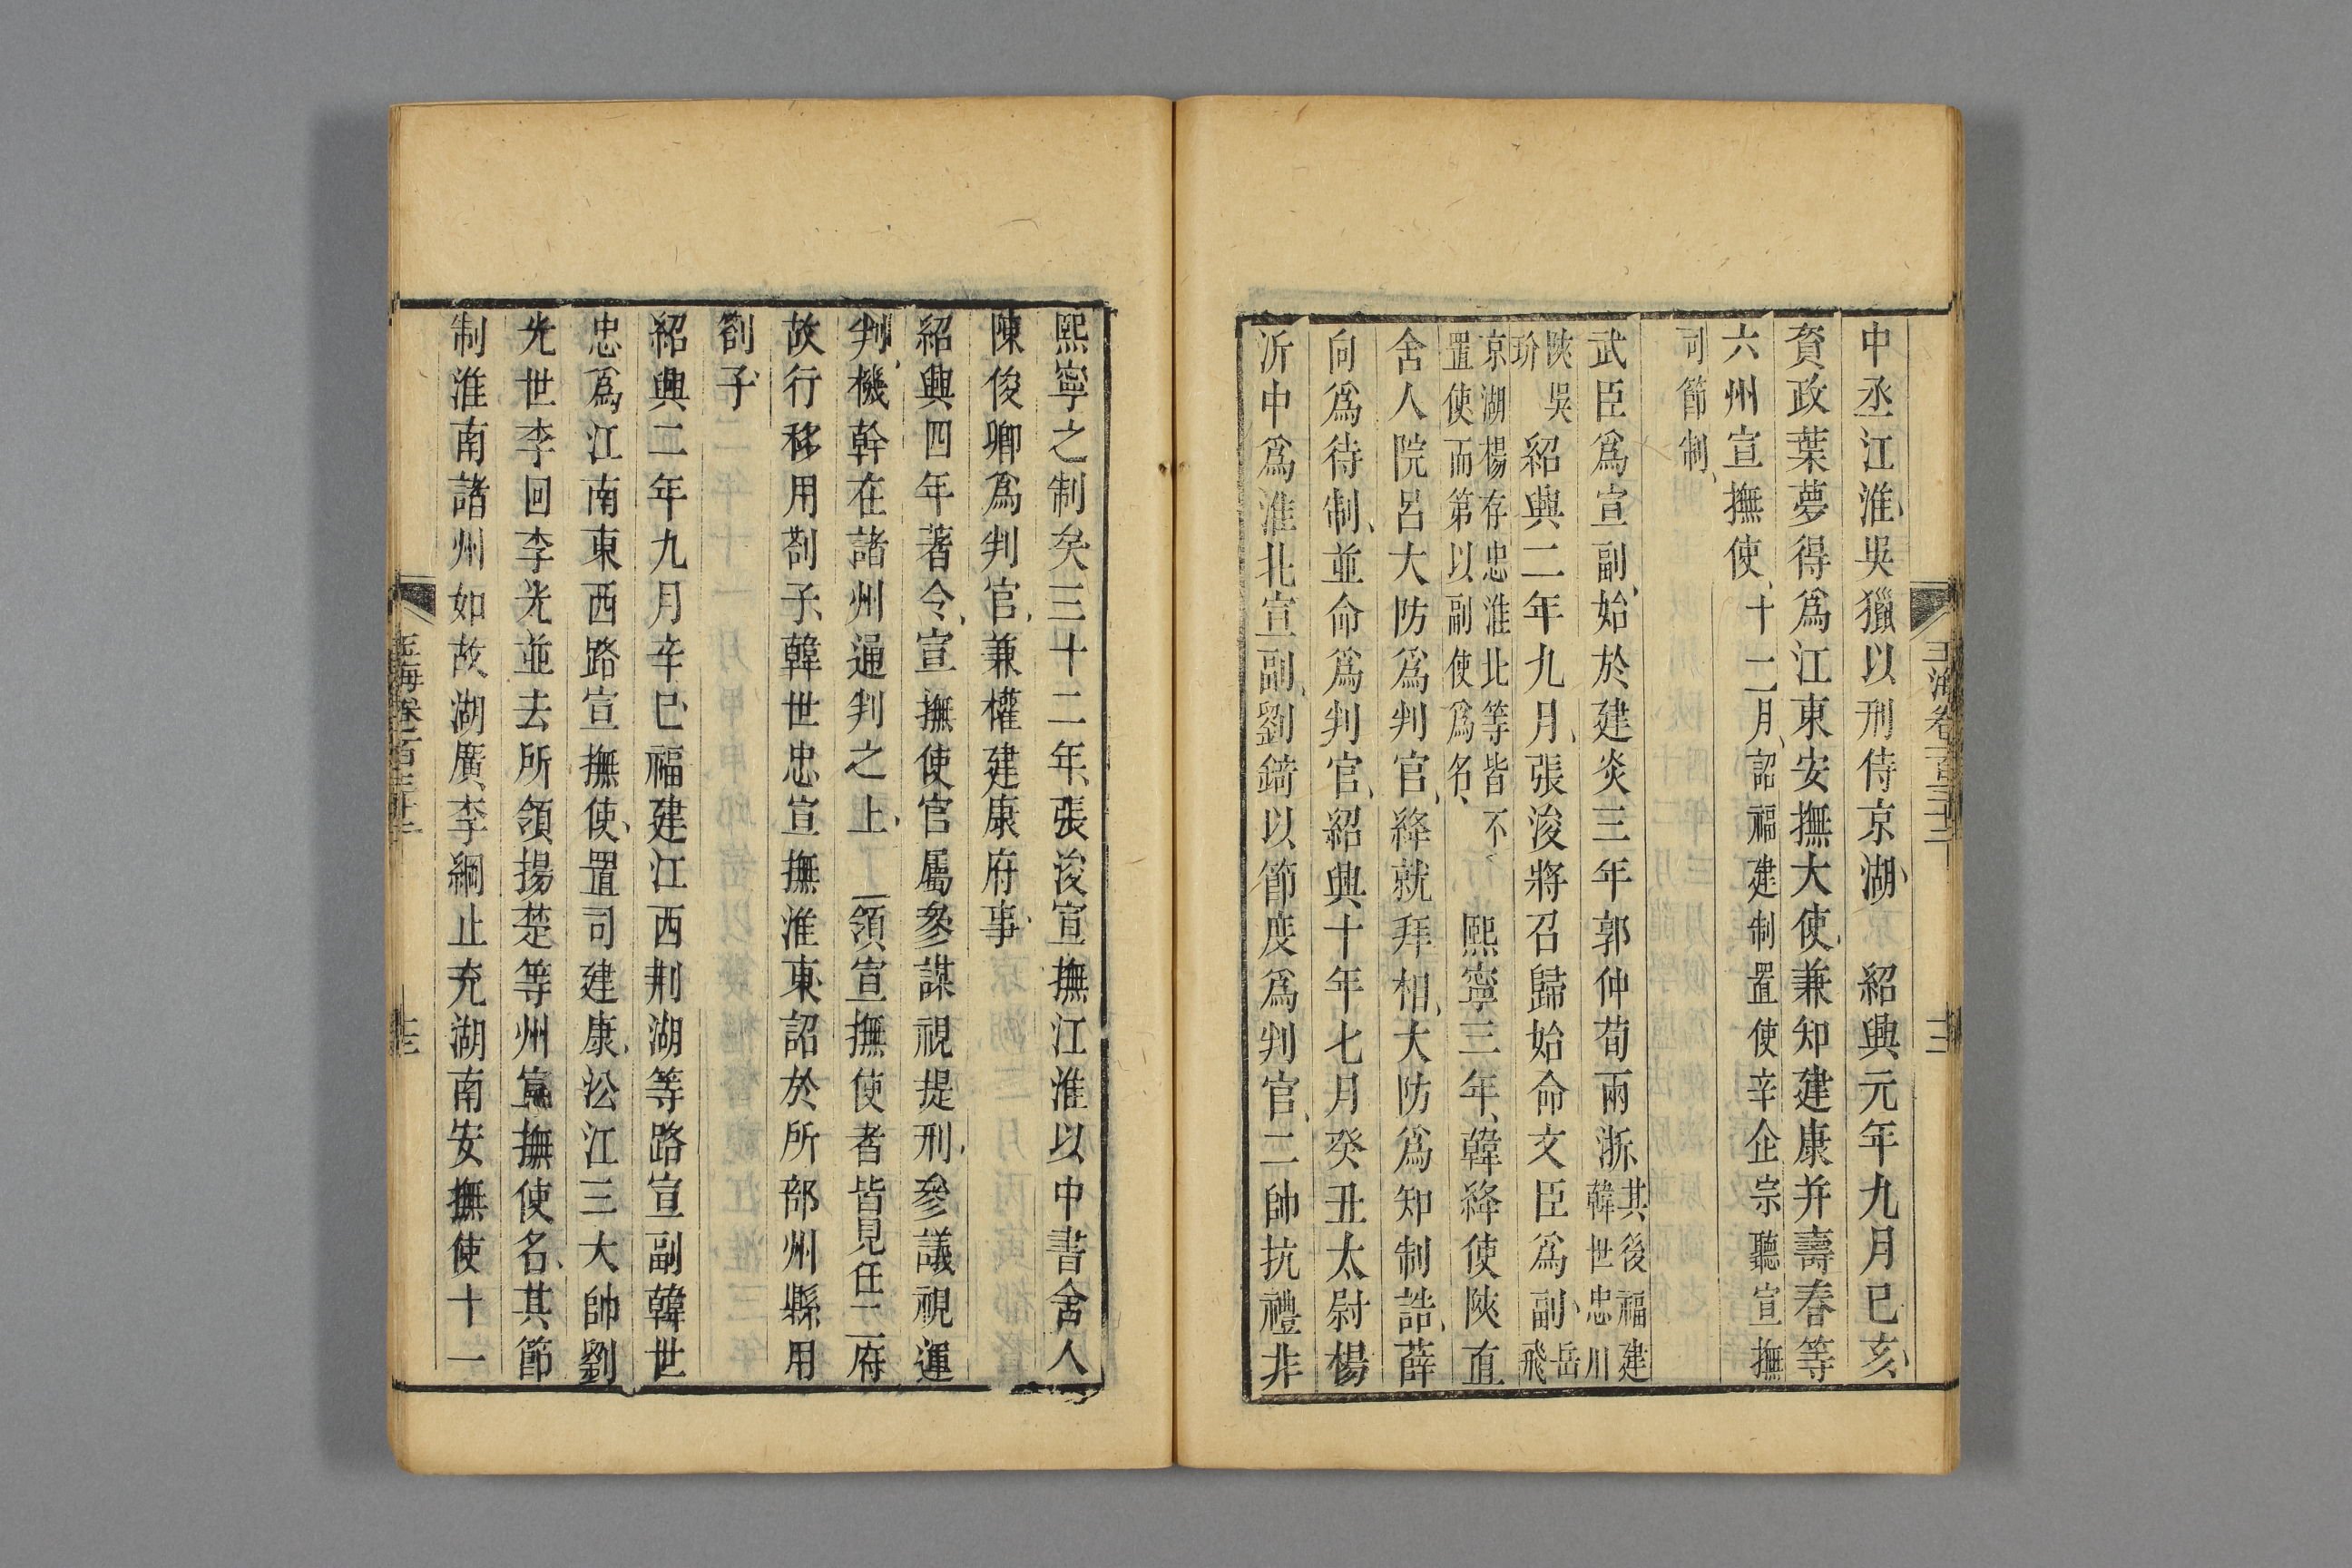 中丞江淮吳獵以刑侍京湖　紹興元年九月已亥
資政葉夢得爲江東安撫大使兼知建康并壽春等
六州宣撫使十二月詔福建制置使辛企宗聽宣撫
司節制
武臣爲宣副始於建炎三年郭仲荀兩浙其後福建韓世忠川
陝吳玠紹興二年九月張浚將召歸始命文臣爲副岳飛
京湖楊存忠淮北等皆不置使而第以副使爲名　熙寧三年韓絳使陝直
舍人院呂大防爲判官絳就拜相大防爲知制誥薛
向爲待制並命爲判官紹興十年七月癸丑太尉楊
沂中爲淮北宣副劉錡以節度爲判官二帥抗禮非
玉海卷一百三十二
熙寧之制矣三十二年張浚宣撫江淮以中書舍人
陳俊卿爲判官兼權建康府事
紹興四年著令宣撫使官屬參謀視提刑參議視運
判機幹在諸州通判之上一領宣撫使者皆見任二府
故行移用劄子韓世忠宣撫淮東詔於所部州縣用
劄子
紹興二年九月辛巳福建江西荆湖等路宣副韓世
忠爲江南東西路宣撫使置司建康㳂江三大帥劉
光世李回李光並去所領揚楚等州宣撫使名其節
制淮南諸州如故湖廣李綱止充湖南安撫使十一
玉海卷一百三十二